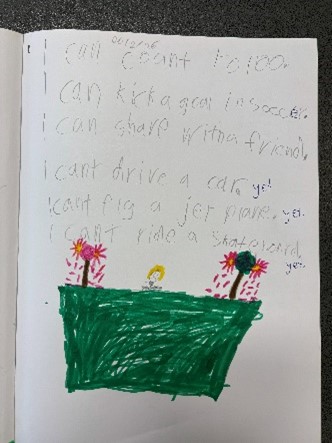 I can count to 100.
I can kick a goal in soccer.
I can share with a friend.
I cant drive a car. yet
I cant fly a jet plane. yet.
I cant ride a skateboard.
yet.